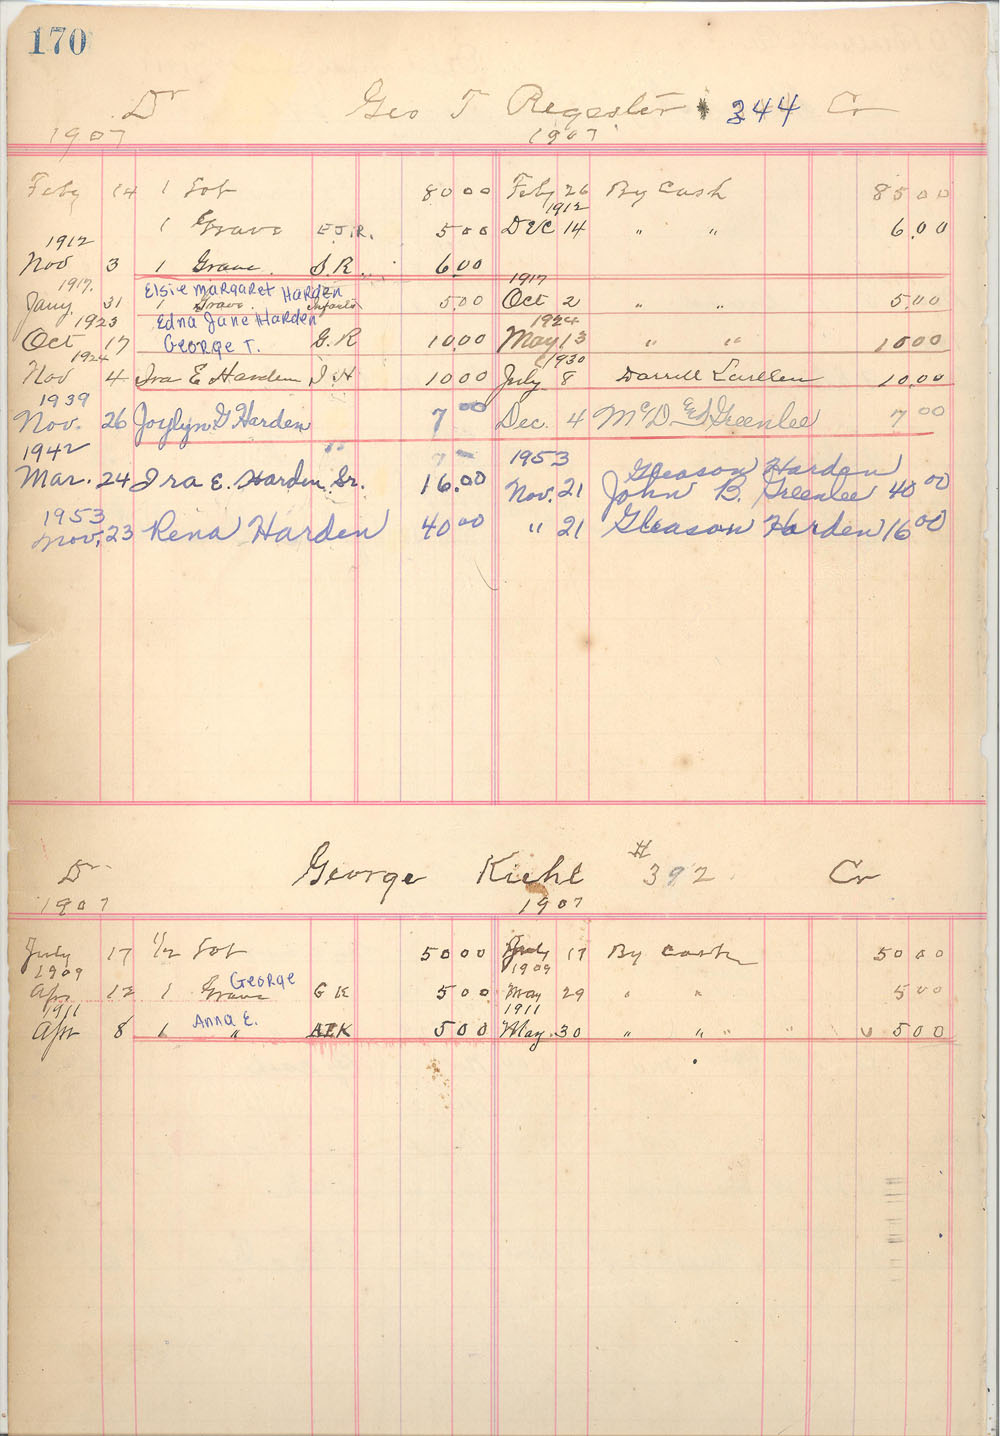 170
Dr Geo T Regester * 344 Cr
1907 1907
Feby 14 1 Lot 80 00 Feby 26 By Cash 85 00
1912
1 Grave E.J.R. 5 00 Dec 14 " " 6.00
1912
Nov 3 1 Grave. S R. 6.00
1917. Elsie Margaret Harden 1917
Jany. 31 1 Grave. infants 5.00 Oct 2 " " 5.00
1923 Edna Jane Harden 1924
Oct 17 George T. G.R 10.00 May 13 " " 10.00
1924 1930
Nov 4 Ira E Harden I.H 10 00 July 8 10.00
1939
Nov. 26 Joylyn G Harden 7 00 Dec. 4 McD. Ed Greenlee 7 00
1942 " 7 - 1953 Gleason Harden
Mar. 24 Ira E. Harden Sr. 16.00 Nov. 21 John B. Greenlee 40 00
1953
Nov. 23 Rena Harden 40 00 " 21 Gleason Harden 16 00
Dr George Kiehl # 392 Cr
1907 1907
July 17 1/2 Lot 50 00 July 17 By Cash 50 00
1909 George 1909
Apr 12 1 Grave G K 5 00 May 29 " " 5 00
1911 Anna E. 1911
Apr 8 1 " AEK 5 00 May. 30 " " " " 5 00